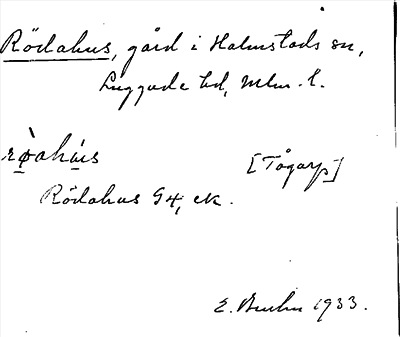 Rödahus, gård i Halmstads sn,
Luggude hd, Mlm. l.
rø̀ahú̱s [Tågarp]
Rödahus G4, ek.
E. Bruhn 1933.